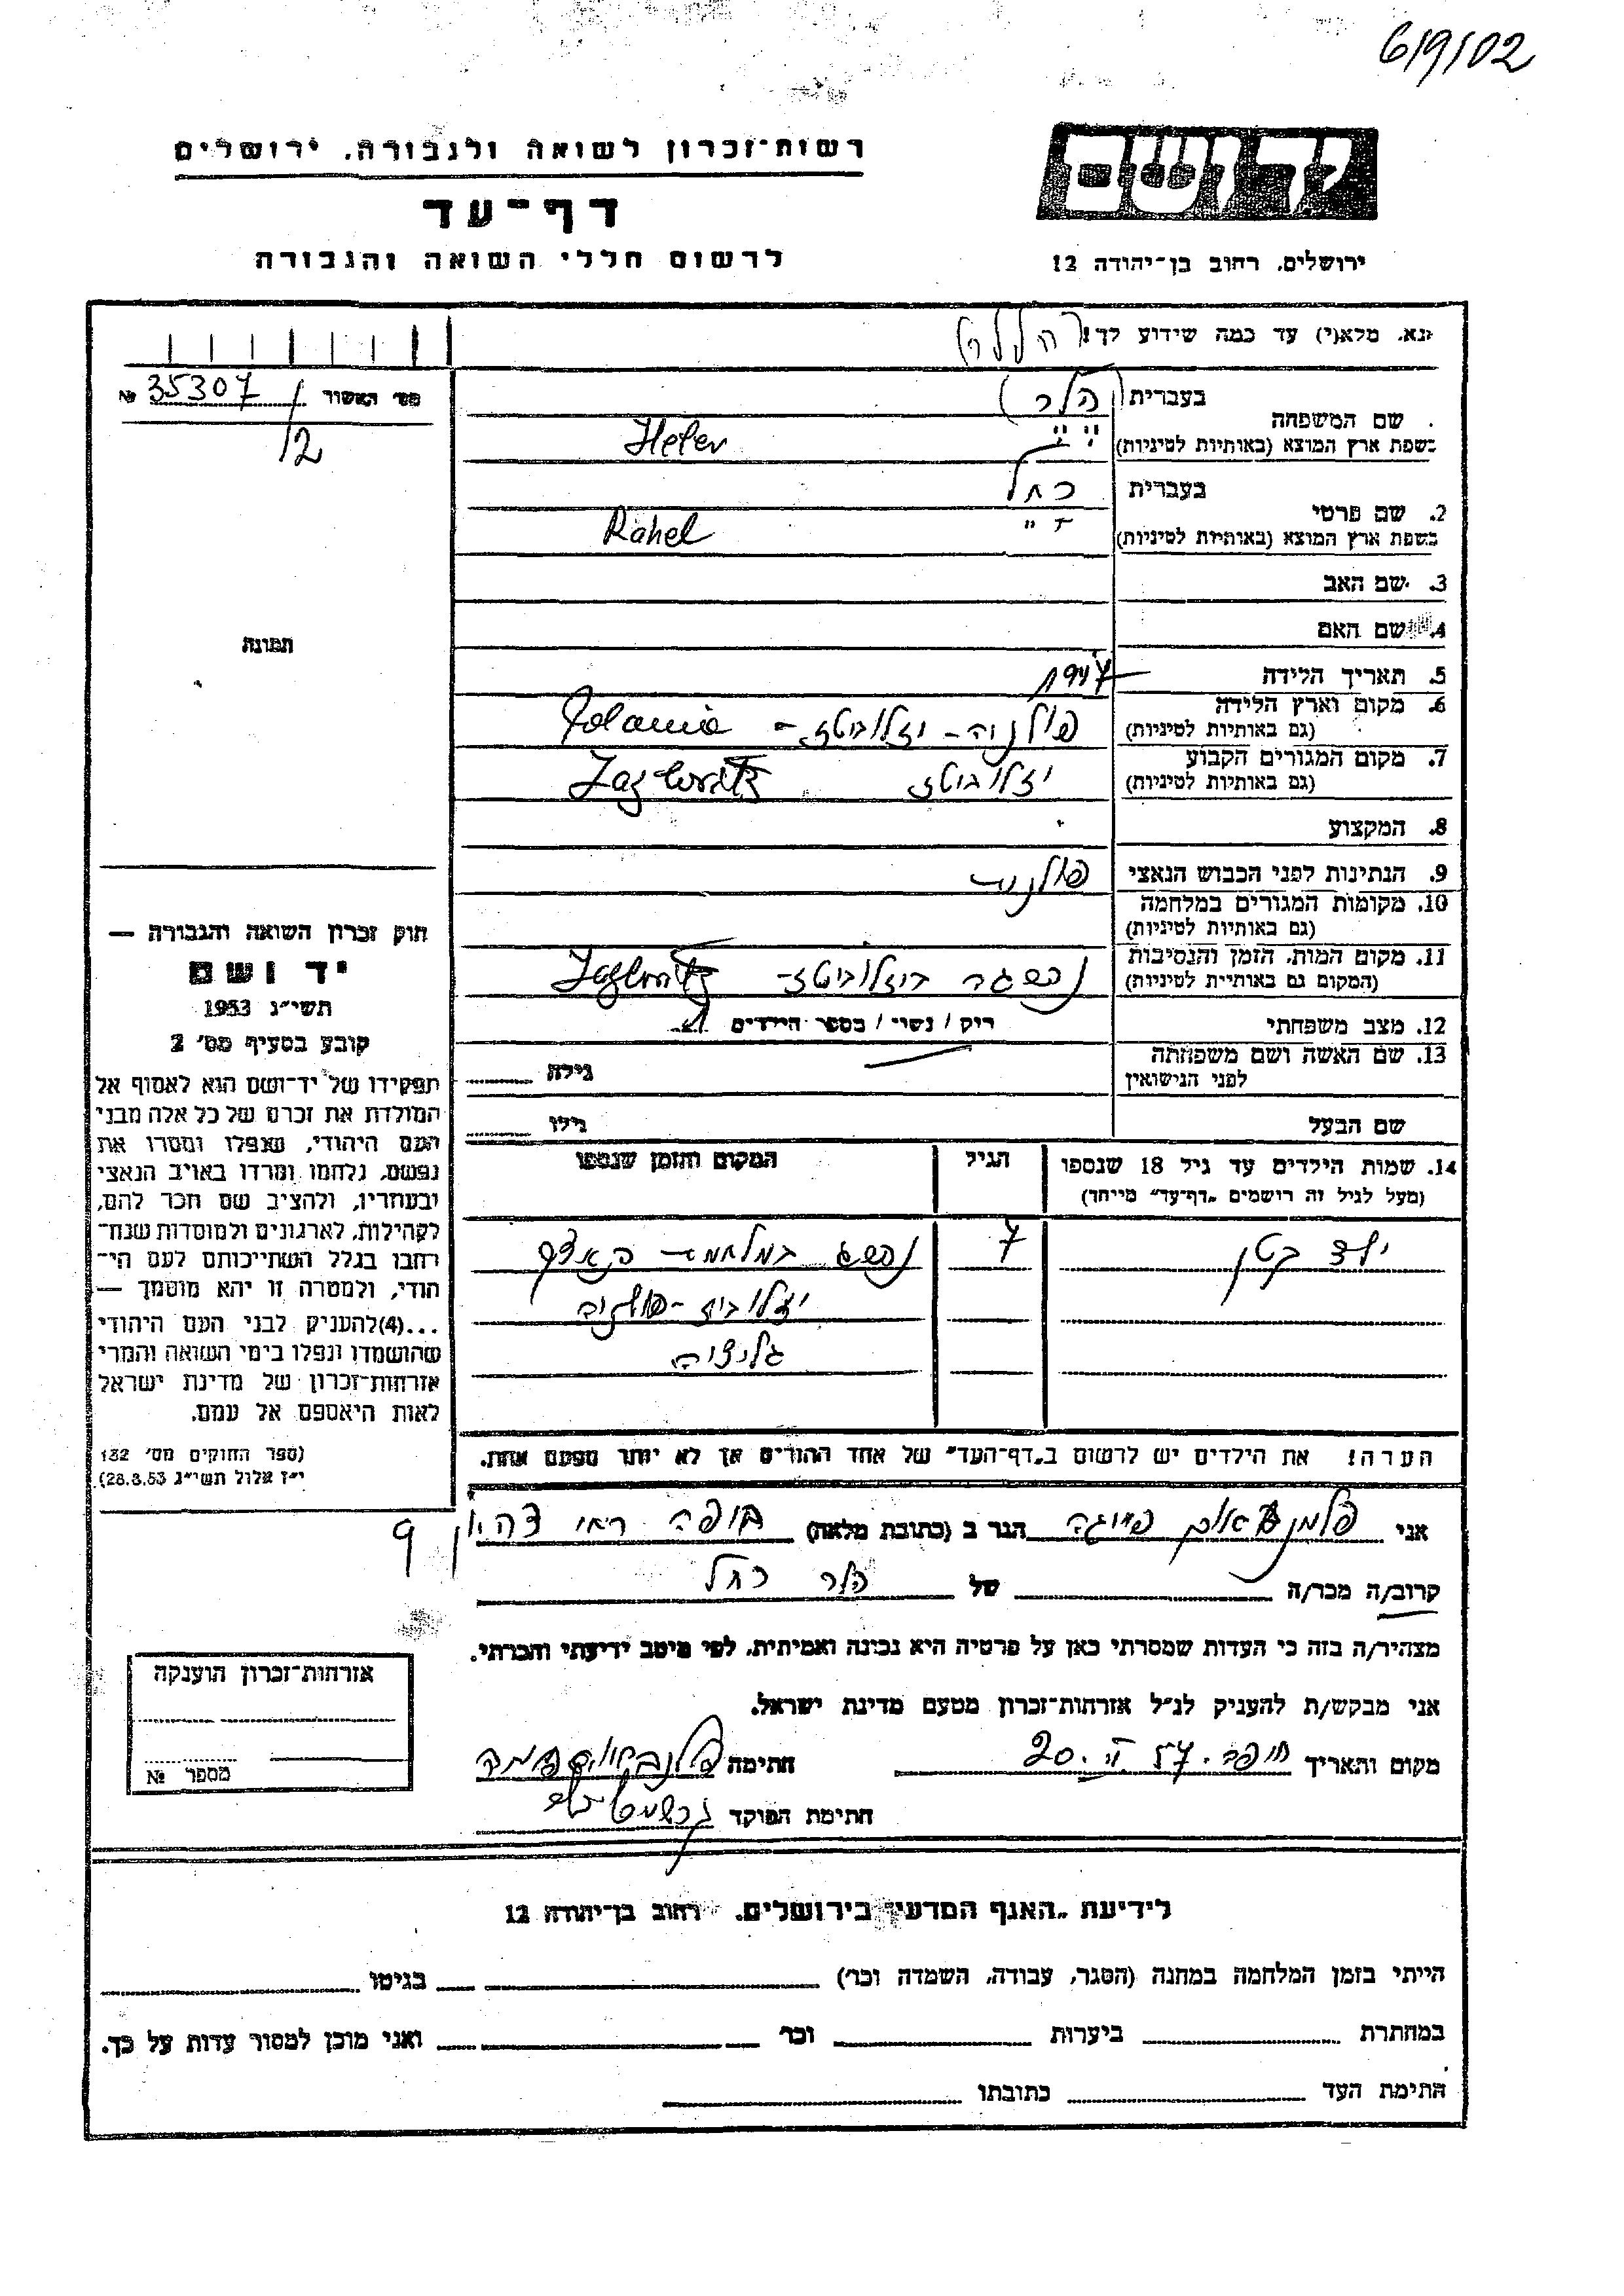 6/9/02
יד ושם
ירושלים. רחוב בן־יהודה 12
רשות־זכרון לשואה ולגבורה. ירושלים
דף־עד
לרשום חללי השואה והגבורה
נא. מלא(י) עד כמה שידוע לך!
מס׳ האשור 35307 №
/2
שם המשפחה
בעברית (הלר)
בשפת ארץ המוצא (באותיות לטיניות) Heler
2. שם פרטי
בעברית רחל
בשפת ארץ המוצא (באותיות לטיניות) Rahel
3. שם האב
4. שם האם
5. תאריך הלידה
6. מקום וארץ הלידה
(גם באותיות לטיניות) פולניה - יזלוביטז - Polania
7. מקום המגורים הקבוע
(גם באותיות לטיניות) יזלוביטז
8. המקצוע
9. הנתינות לפני הכבוש הנאצי פולנית
10. מקומות המגורים במלחמה
(גם באותיות לטיניות)
11. מקום המות. הזמן והנסיבות
(המקום גם באותיות לטיניות) נספתה ביזלוביטז -
12. מצב משפחתי רוק / נשוי / מספר הילדים
13. שם האשה ושם משפחתה
לפני הנישואין
גילה
שם הבעל גילו
14. שמות הילדים עד גיל 18 שנספו
(מעל לגיל זה רושמים „דף־עד״ מייחד)
הגיל
המקום והזמן שנספו
ילד קטן 7 נספה במלחמת
יזלוביז - פולניה
גליציה
הערה! את הילדים יש לרשום ב„דף־העד״ של אחד ההורים אך לא יותר מפעם אחת.
תמונה
חוק זכרון השואה והגבורה —
יד ושם
תשי״ג 1953
קובע בסעיף מס׳ 2
תפקידו של יד־ושם הוא לאסוף אל
המולדת את זכרם של כל אלה מבני
העם היהודי, שנפלו ומסרו את
נפשם, נלחמו ומרדו באויב הנאצי
ובעוזריו, ולהציב שם וזכר להם,
לקהילות, לארגונים ולמוסדות שנח־
רבו בגלל השתייכותם לעם הי־
הודי, ולמטרה זו יהא מוסמך —
...(4)להעניק לבני העם היהודי
שהושמדו ונפלו בימי השואה והמרי
אזרחות־זכרון של מדינת ישראל
לאות היאספם אל עמם.
(ספר החוקים מס׳ 132
י״ז אלול תשי״ג 28.8.53)
אני הגר ב (כתובת מלאה) חיפה 9
קרוב/ה מכר/ה של הלר רחל
מצהיר/ה בזה כי העדות שמסרתי כאן על פרטיה היא נכונה ואמיתית. לפי מיטב ידיעתי והכרתי.
אני מבקש/ת להעניק לנ״ל אזרחות־זכרון מטעם מדינת ישראל.
מקום ותאריך חיפה. חתימה
חתימת הפוקד
אזרחות־זכרון הוענקה
מספר №
לידיעת „האגף המדעי״ בירושלים. רחוב בן־יהודה 12
הייתי בזמן המלחמה במחנה (הסגר, עבודה, השמדה וכר׳) בגיטו
במחתרת ביערות וכר׳ ואני מוכן למסור עדות על כך.
חתימת העד כתובתו